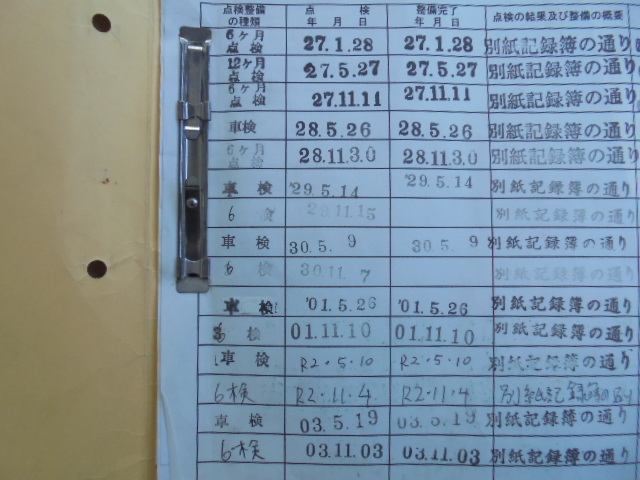 点検整備の種類 点検年月日 整備完了年月日 点検の結果及び整備の概要
6ヶ月点検 27.1.28 27.1.28 別紙記録簿の通り
12ヶ月点検 27.5.27 27.5.27 別紙記録簿の通り
6ヶ月点検 27.11.11 27.11.11 別紙記録簿の通り
車検 28.5.26 28.5.26 別紙記録簿の通り
6ヶ月点検 28.11.30 28.11.30 別紙記録簿の通り
車検 '29.5.14 '29.5.14 別紙記録簿の通り
6 検 29.11.15 別紙記録簿の通り
車検 30.5.9 30.5.9 別紙記録簿の通り
6 検 30.11.7 別紙記録簿の通り
車検 '01.5.26 '01.5.26 別紙記録簿の通り
検 01.11.10 01.11.10 別紙記録簿の通り
車検 R2.5.10 R2.5.10 別紙記録簿の通り
6検 R2.11.4 R2.11.4 別紙記録簿の通り
車検 03.5.19 03.5.19 別紙記録簿の通り
6検 03.11.03 03.11.03 別紙記録簿の通り